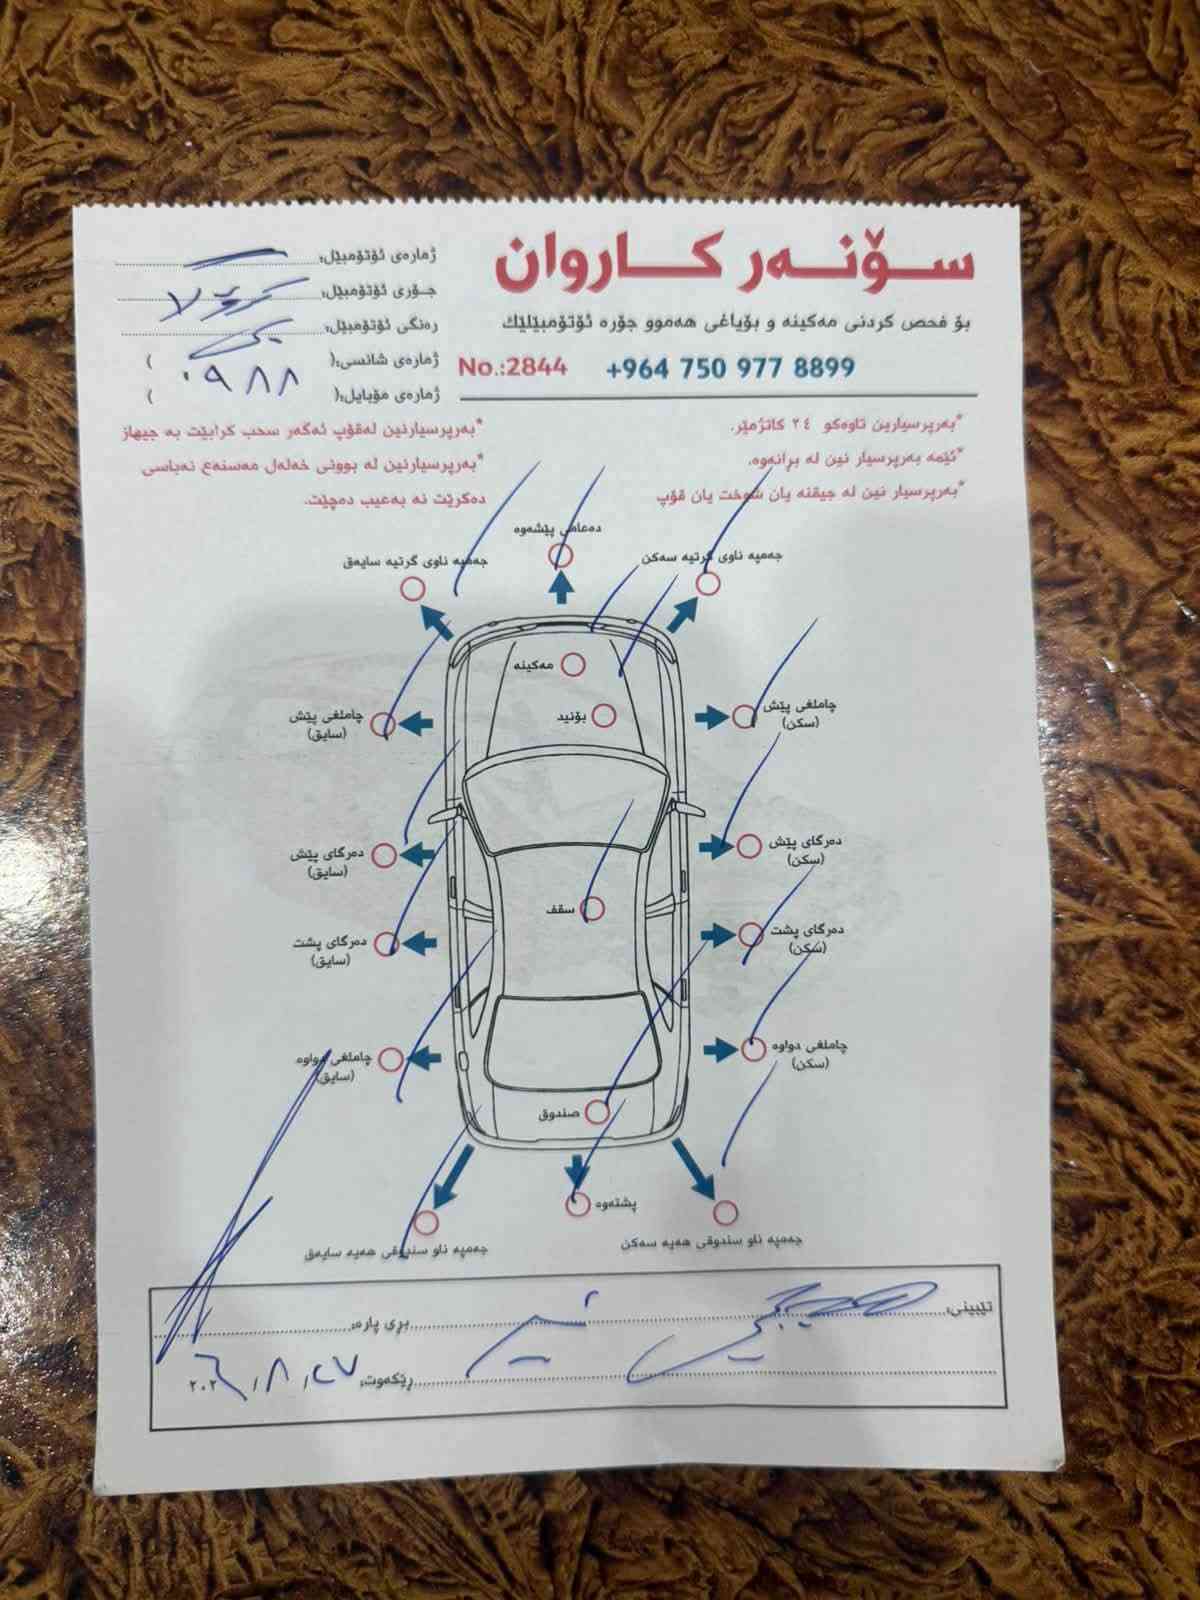 سـۆنـەر كـاروان
بۆ فحص كردنى مەكينە و بۆياغى هەموو جۆرە ئۆتۆمبێلێك
No.:2844 +964 750 977 8899
ژمارەى ئۆتۆمبێل:
جـۆرى ئۆتۆمبێل:
رەنگى ئۆتۆمبێل:
ژمارەى شانسى:( ٠٩٨٨ )
ژمارەى مۆبايل:( )
*بەرپرسيارين تاوەكو ٢٤ كاتژمێر.
*ئێمە بەرپرسيار نين لە برانەوە.
*بەرپرسيار نين لە جيقنە يان شوخت يان قۆپ
*بەرپرسيارنين لەقۆپ ئەگەر سحب كرابێت بە جيهاز
*بەرپرسيارنين لە بوونى خەلەل مەسنەع نەباسى
دەكرێت نە بەعيب دەچێت.
دەعامى پێشەوە
جەمپە ناوى گرتيە سايەق
جەمپە ناوى گرتيە سەكن
مەكينە
بۆنيد
چاملغى پێش
(سايق)
چاملغى پێش
(سكن)
دەرگاى پێش
(سايق)
دەرگاى پێش
(سكن)
سقف
دەرگاى پشت
(سايق)
دەرگاى پشت
(سكن)
چاملغى دواوە
(سايق)
چاملغى دواوە
(سكن)
صندوق
پشتەوە
جەمپە ناو سندوقى هەيە سايەق
جەمپە ناو سندوقى هەيە سەكن
تێبينى:
بڕى پارە:
ڕێكەوت: